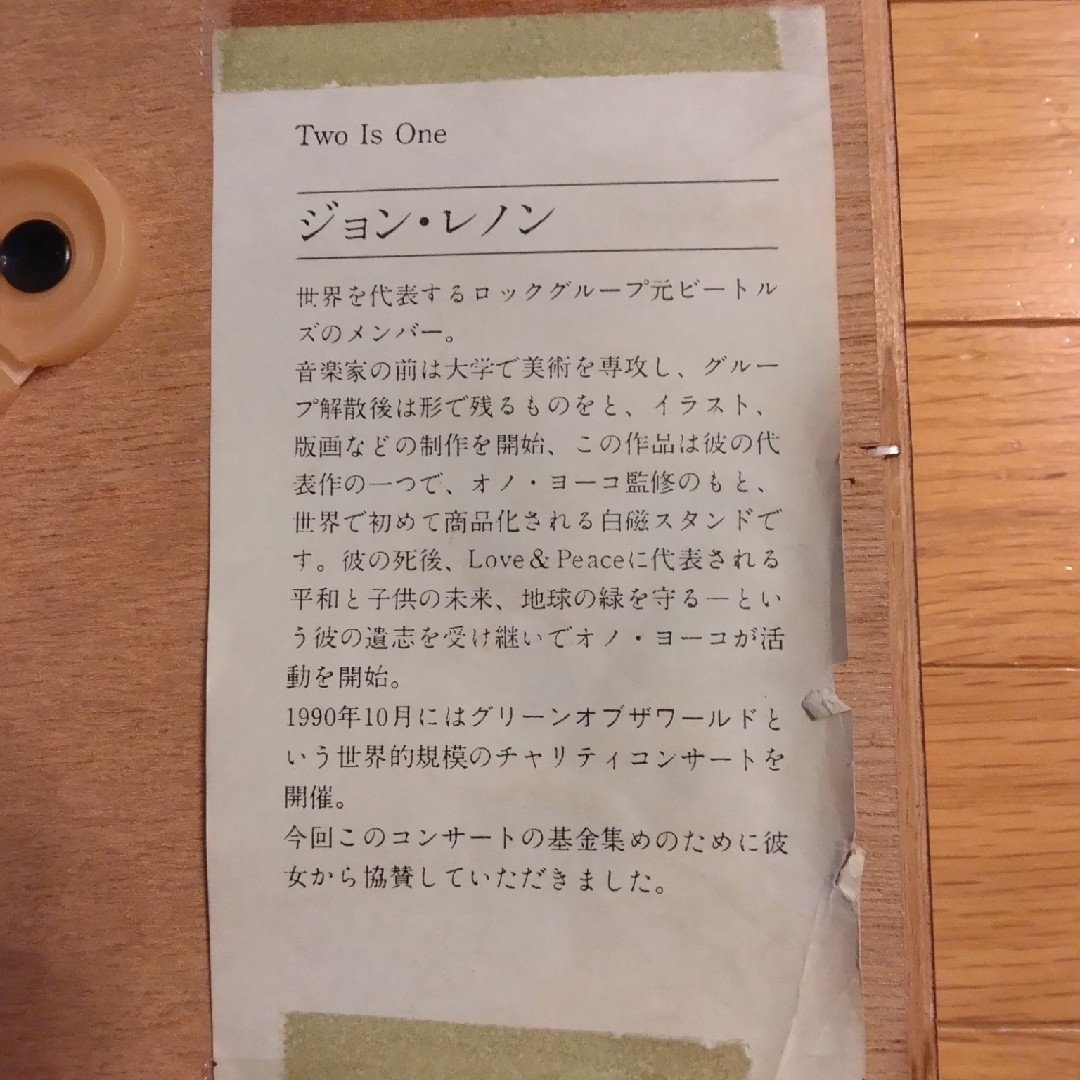 Two Is One
ジョン・レノン
世界を代表するロックグループ元ビートル
ズのメンバー。
音楽家の前は大学で美術を専攻し、グルー
プ解散後は形で残るものをと、イラスト、
版画などの制作を開始、この作品は彼の代
表作の一つで、オノ・ヨーコ監修のもと、
世界で初めて商品化される白磁スタンドで
す。彼の死後、Love&Peaceに代表される
平和と子供の未来、地球の緑を守る―とい
う彼の遺志を受け継いでオノ・ヨーコが活
動を開始。
1990年10月にはグリーンオブザワールドと
いう世界的規模のチャリティコンサートを
開催。
今回このコンサートの基金集めのために彼
女から協賛していただきました。